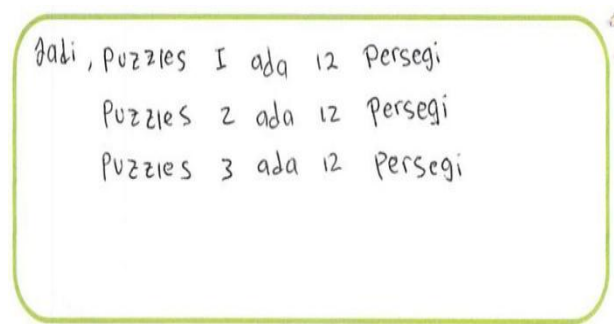 Jadi, Puzzles I ada 12 Persegi
Puzzles 2 ada 12 Persegi
Puzzles 3 ada 12 Persegi